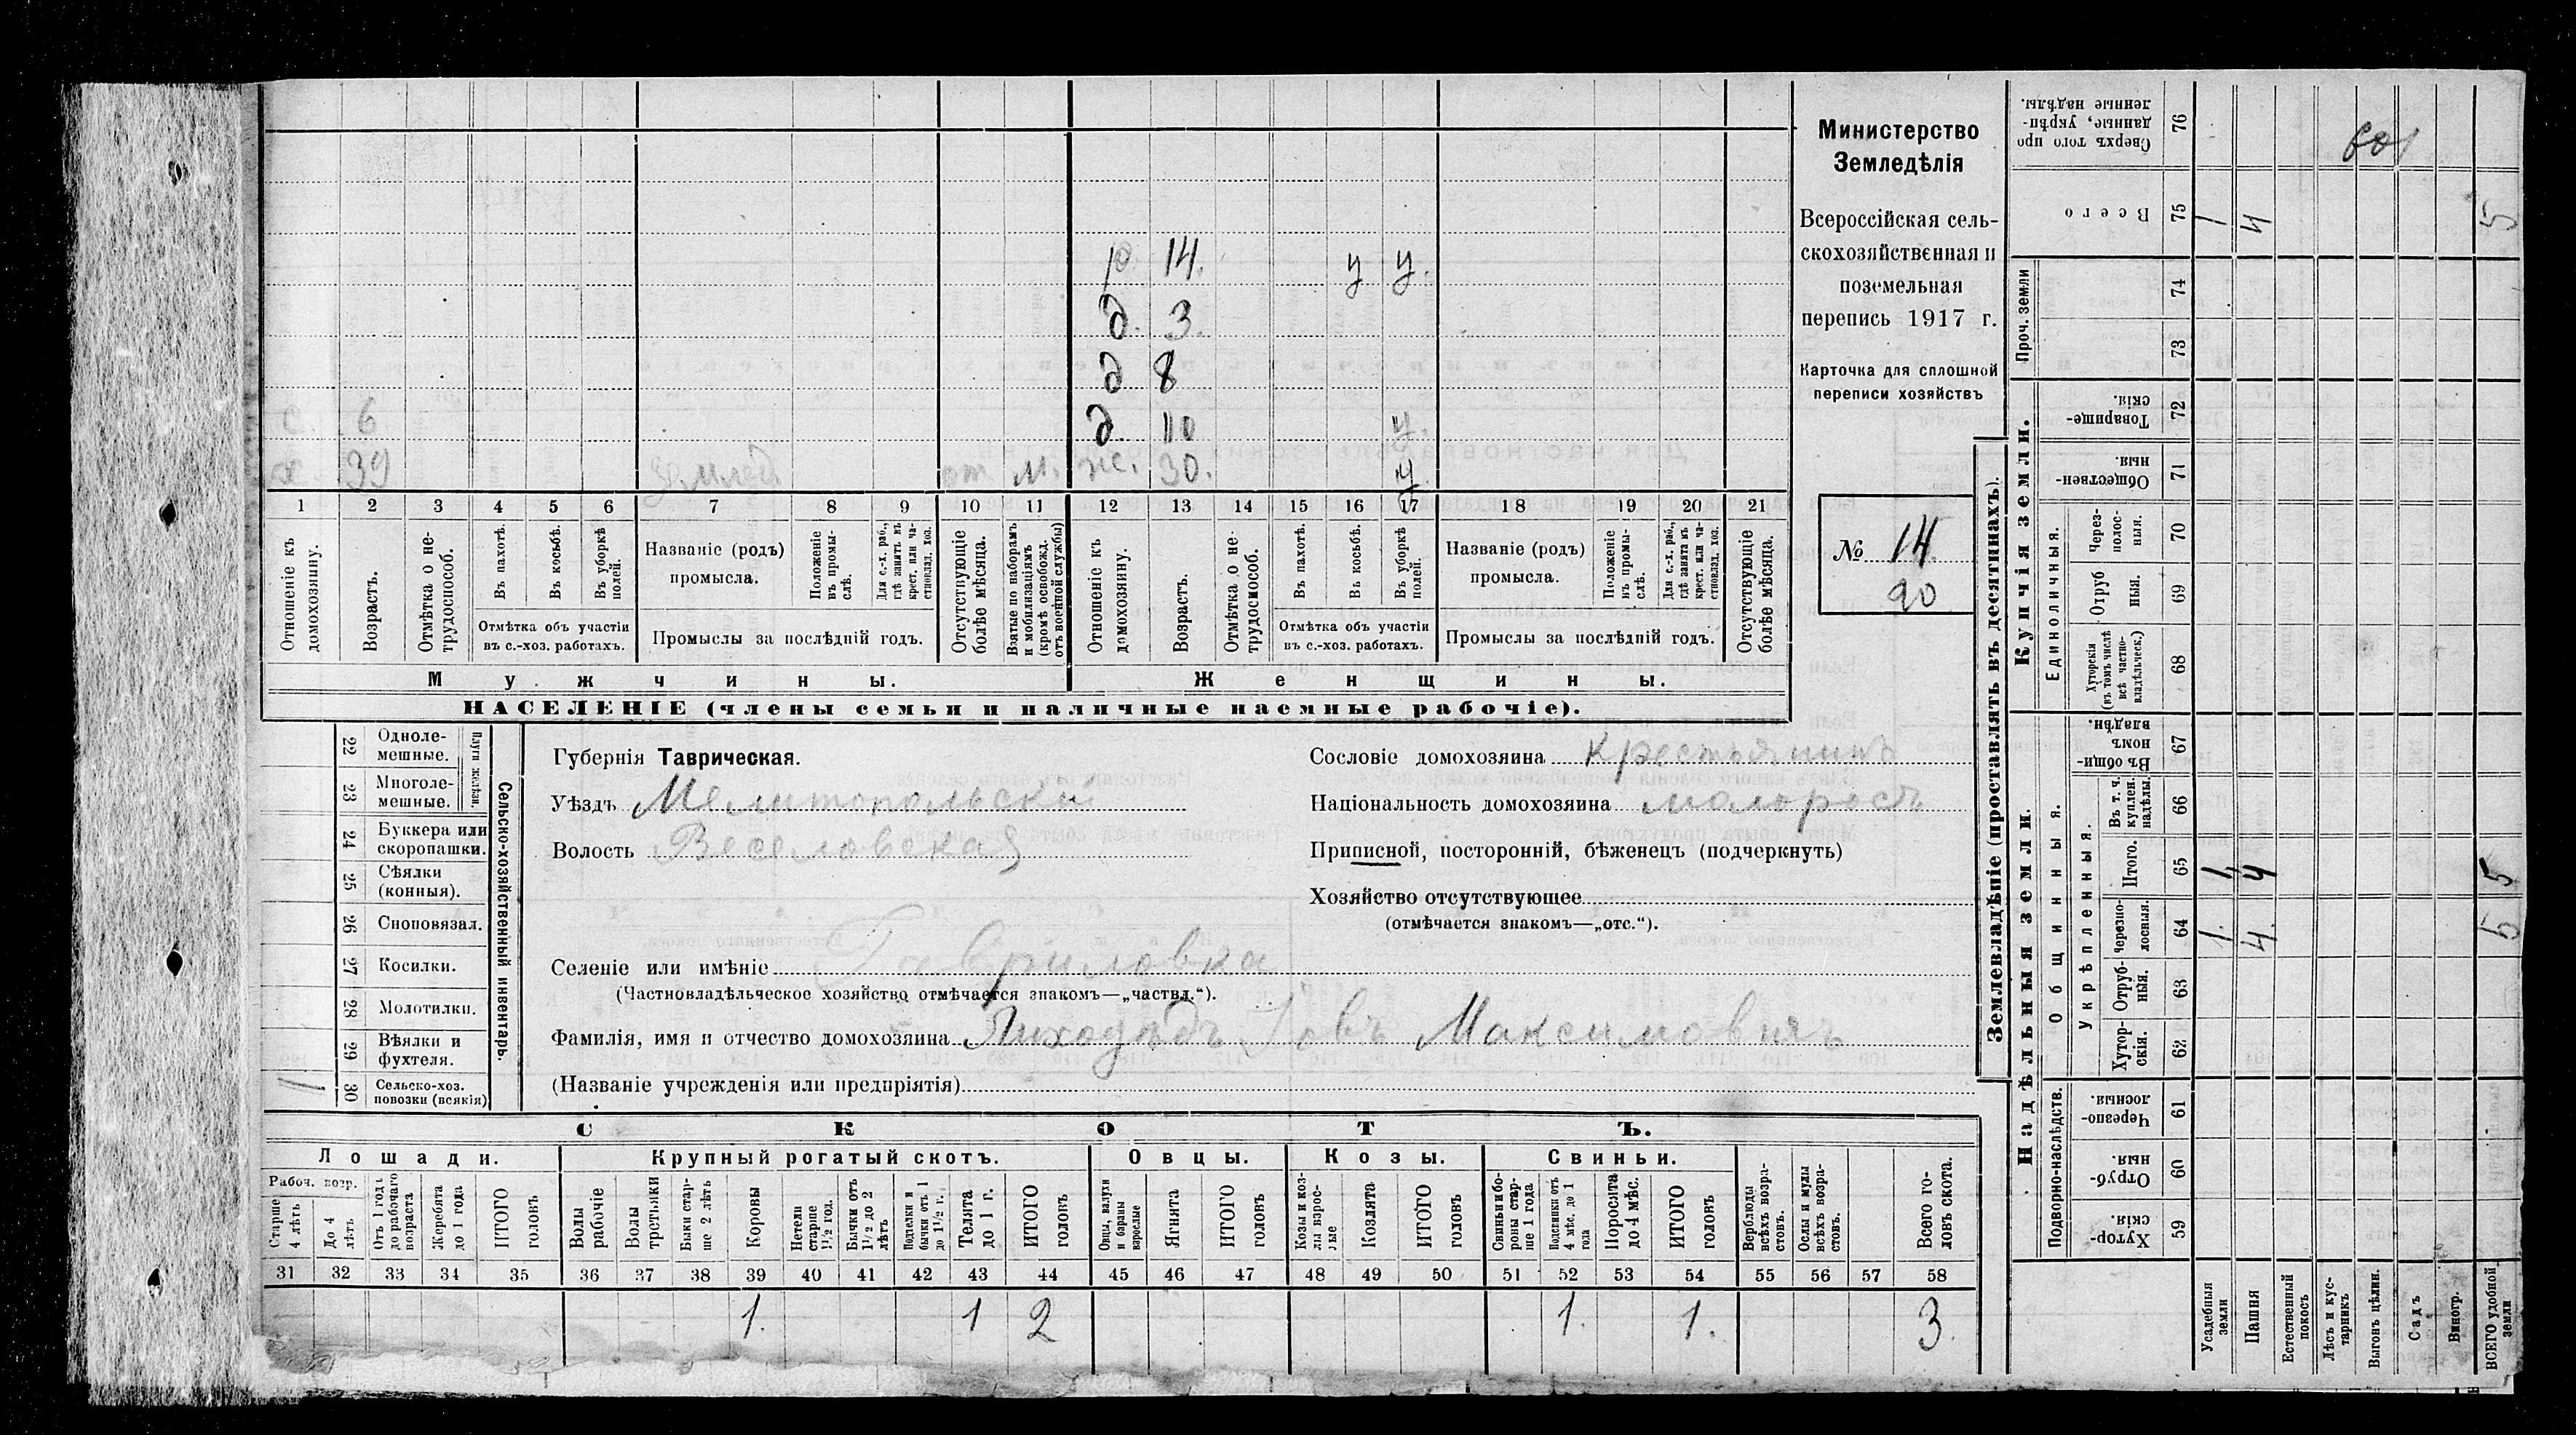 Министерство
Земледѣлія
Всероссійская сель-
скохозяйственная и
поземельная
перепись 1917 г.
Карточка для сплошной
переписи хозяйствъ
№ 14.
90
р. 14. у у.
д. 3.
д 8
д. 10 у.
с 6
х 39 землед от м. ж. 30. у
1 2 3 4 5 6 7 8 9 10 11 12 13 14 15 16 17 18 19 20 21
Отношеніе къ домохозяину.
Возрастъ.
Отмѣтка о не-трудоспособ.
Въ пахотѣ.
Въ косьбѣ.
Въ уборкѣ полей.
Отмѣтка объ участіи
въ с.-хоз. работахъ.
Названіе (родъ)
промысла.
Положеніе въ промы-слѣ.
Для с.-х. раб., гдѣ занятъ въ крест. или ча-стновлад. хоз.
Промыслы за послѣдній годъ.
Отсутствующіе болѣе мѣсяца.
Взятые по наборамъ и мобилизаціямъ (кромѣ освобожд. отъ военной службы)
Отношеніе къ домохозяину.
Возрастъ.
Отмѣтка о не-трудоспособ.
Въ пахотѣ.
Въ косьбѣ.
Въ уборкѣ полей.
Отмѣтка объ участіи
въ с.-хоз. работахъ.
Названіе (родъ)
промысла.
Положеніе въ промы-слѣ.
Для с.-х. раб., гдѣ занята въ крест. или ча-стновлад. хоз.
Промыслы за послѣдній годъ.
Отсутствующіе болѣе мѣсяца.
Мужчины. Женщины.
НАСЕЛЕНІЕ (члены семьи и наличные наемные рабочіе).
22 Одноле-мешные.
23 Многоле-мешные.
Плуги желѣзн.
24 Буккера или скоропашки.
25 Сѣялки (конныя).
26 Сноповязал.
27 Косилки.
28 Молотилки.
29 Вѣялки и фухтеля.
1 30 Сельско-хоз. повозки (всякія)
Сельско-хозяйственный инвентарь.
Губернія Таврическая.
Уѣздъ Мелитопольскій
Волость Веселовская
Сословіе домохозяина крестьянинъ
Національность домохозяина малоросъ
Приписной, посторонній, бѣженецъ (подчеркнуть)
Хозяйство отсутствующее
(отмѣчается знакомъ—„отс.“).
Селеніе или имѣніе Гавриловка
(Частновладѣльческое хозяйство отмѣчается знакомъ—„частвл.“).
Фамилія, имя и отчество домохозяина Лиходѣдъ Іовъ Максимовичъ
(Названіе учрежденія или предпріятія)
СКОТЪ.
Лошади. Крупный рогатый скотъ. Овцы. Козы. Свиньи.
Рабоч. возр.
Старше 4 лѣтъ
До 4 лѣтъ
Отъ 1 года до рабочаго возраста
Жеребята до 1 года
ИТОГО головъ
Волы рабочіе
Волы третьяки
Быки стар-ше 2 лѣтъ
Коровы
Нетели старше 1½ год.
Бычки отъ 1½ до 2 лѣтъ
Подтелки и бычки отъ 1 до 1½ г.
Телята до 1 г.
ИТОГО головъ
Овцы, валухи и бараны взрослые
Ягнята
ИТОГО головъ
Козы и коз-лы взрос-лые
Козлята
ИТОГО головъ
Свиньи и бо-ровы стар-ше 1 года
Подсвинки отъ 4 мѣс. до 1 года
Поросята до 4 мѣс.
ИТОГО головъ
Верблюды всѣхъ возра-стовъ.
Ослы и мулы всѣхъ возра-стовъ.
Всего го-ловъ скота.
31 32 33 34 35 36 37 38 39 40 41 42 43 44 45 46 47 48 49 50 51 52 53 54 55 56 57 58
1. 1 2 1. 1. 3.
Землевладѣніе (проставлять въ десятинахъ).
Купчія земли.
Надѣльныя земли.
Проч. земли
Единоличныя.
Общинныя.
Укрѣпленныя.
Подворно-наслѣдств.
Сверхъ того про данные, укрѣп-ленные надѣлы. 76
Всего 75 1 4 5
74
73
Товарище-скія. 72
Обществен-ныя. 71
Через-полос-ныя. 70
Отруб ныя. 69
Хуторскія (въ томъ числѣ всѣ частно-владѣльческ.) 68
Въ общи-номъ владѣн. 67
Въ т. ч. куплен. надѣлы. 66
Итого. 65 1 4 5
Черезпо-лосныя. 64 1. 4. 5
Отруб-ныя. 63
Хутор-скія. 62
Черезпо-лосныя. 61
Отруб-ныя. 60
Хутор-скія. 59
Усадебныя земли
Пашня
Естественный покосъ
Лѣсъ и кус-тарникъ
Выгонъ цѣлин.
Садъ
Виногр.
ВСЕГО удобной земли